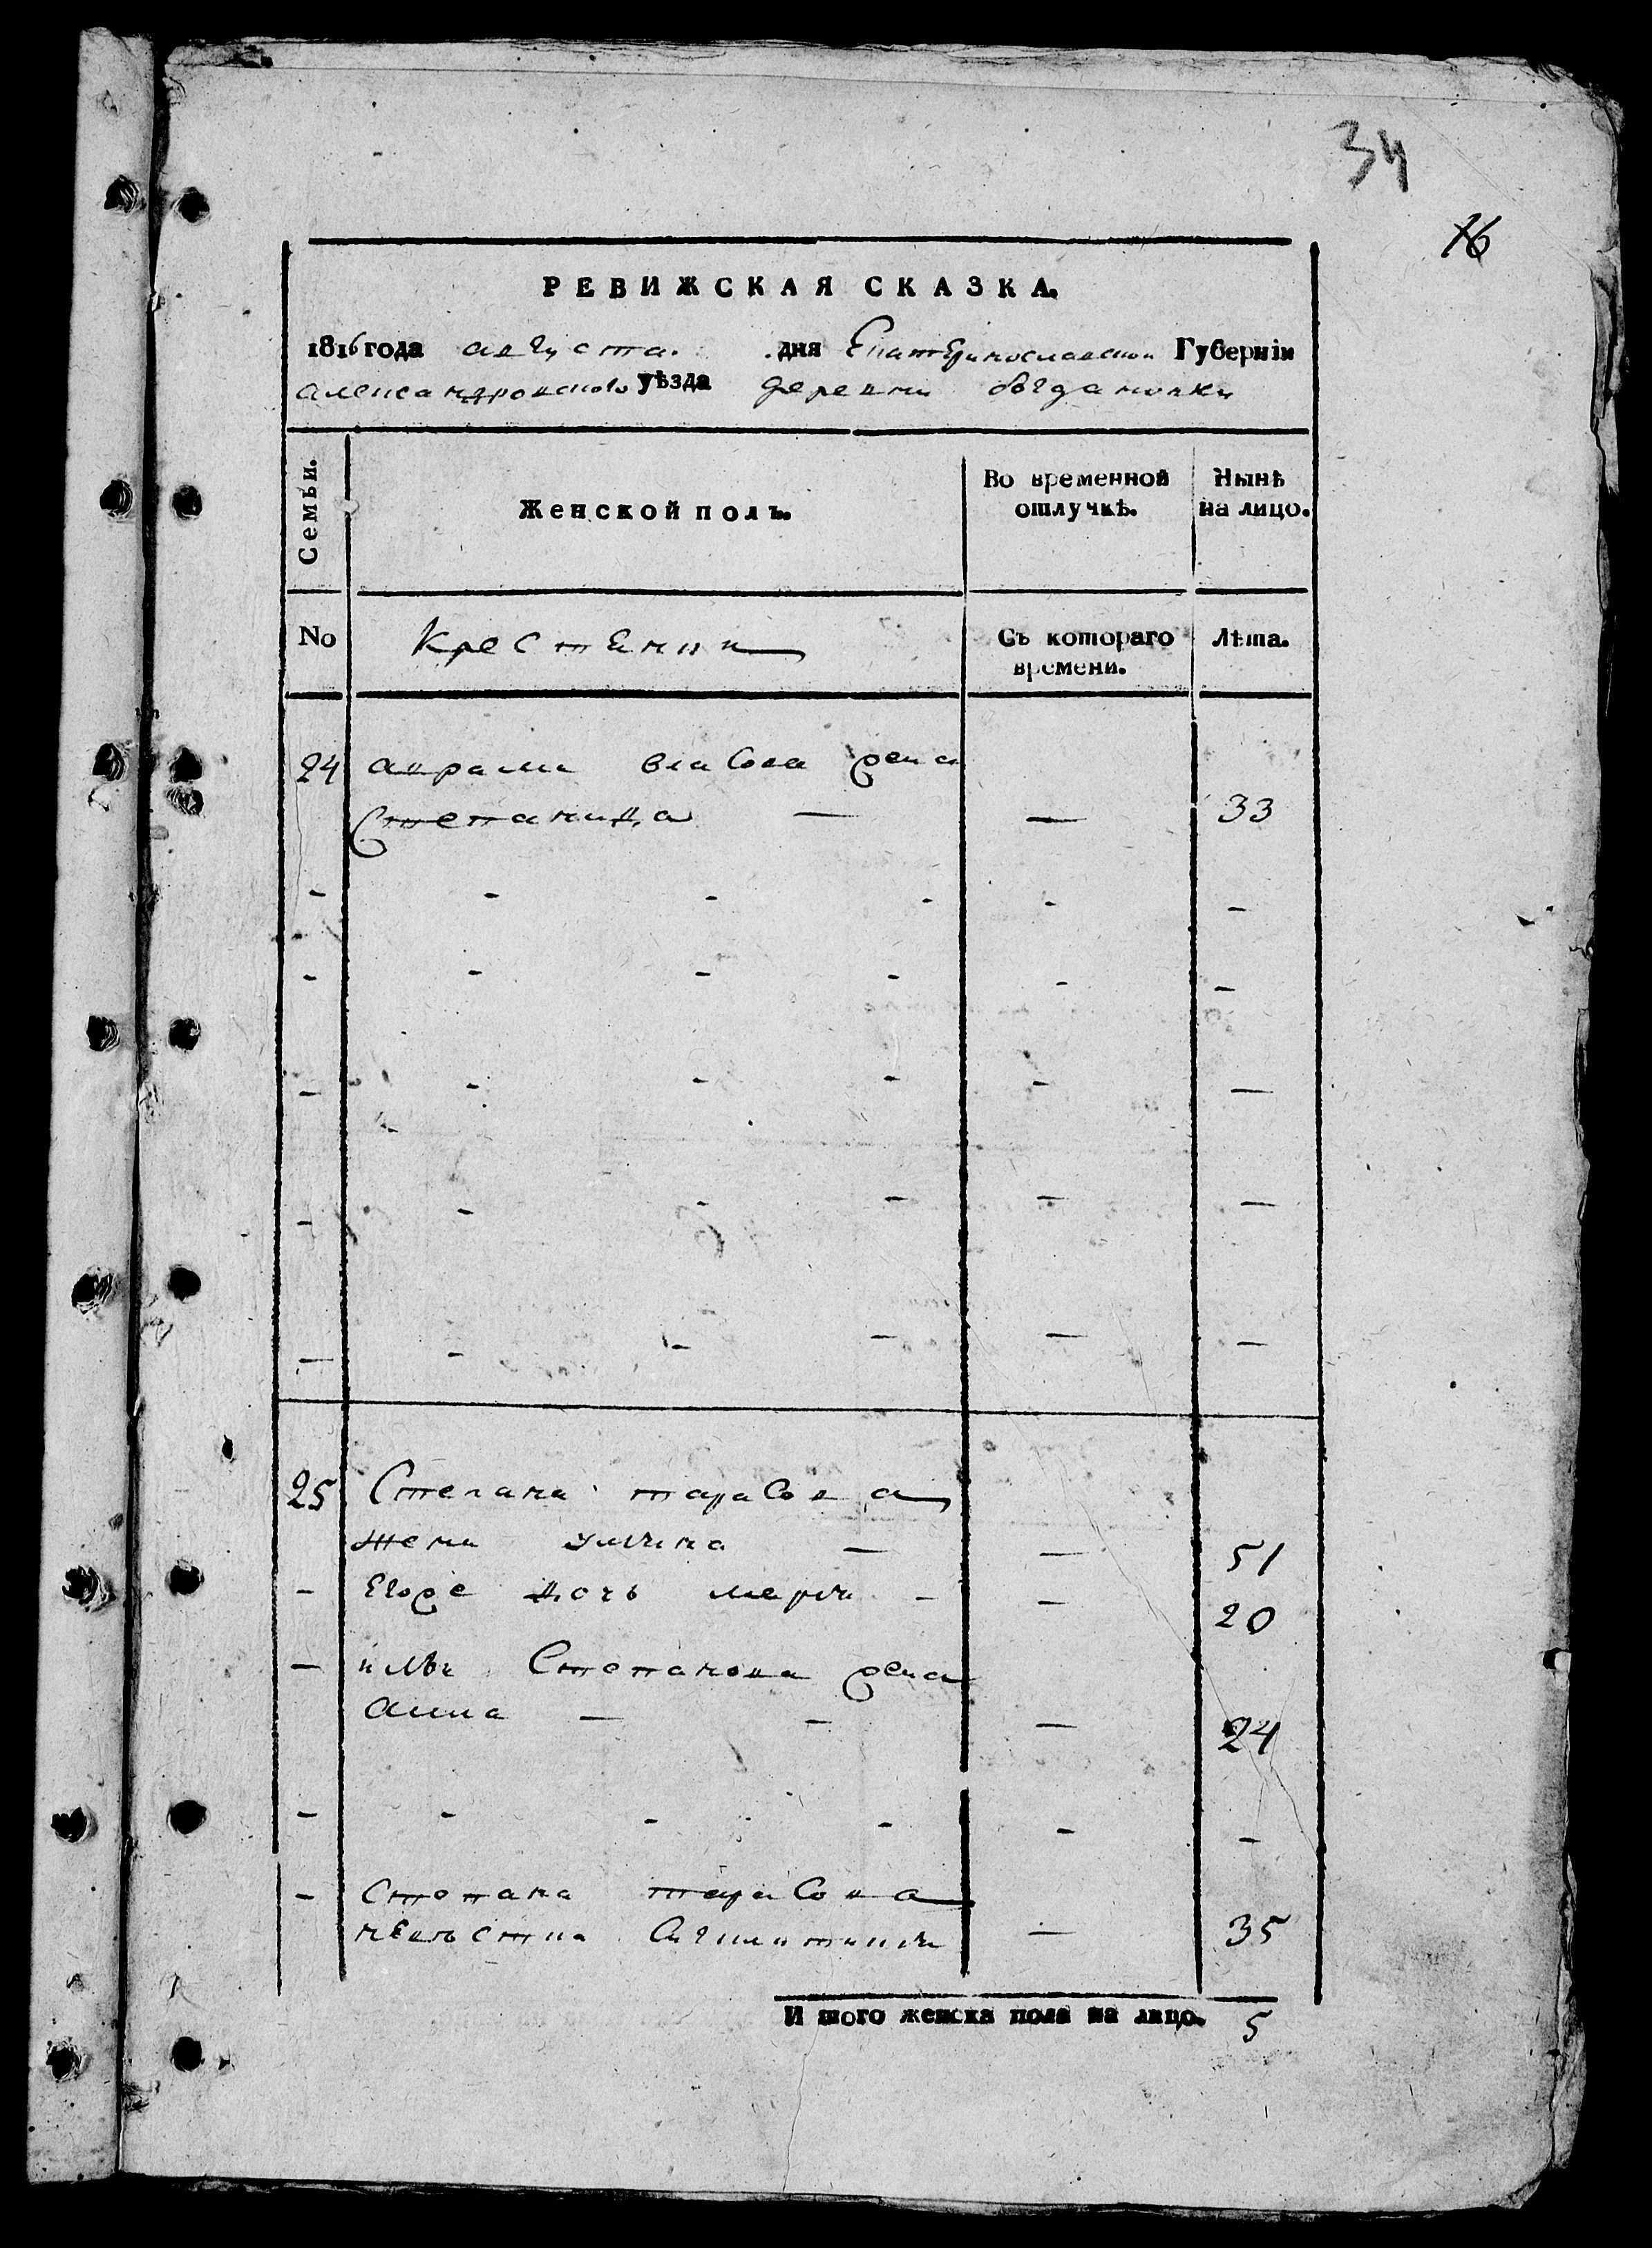 34
16
РЕВИЖСКАЯ СКАЗКА.
1816 года августа дня Екатеринославской Губернiи
александровского уѣзда деревни богдановки
Семьи.
Женской полъ.
Во временной отлучкѣ.
Нынѣ на лицо.
No
Крестьянки
Съ котораго времени.
Лѣта.
24 аврама власова жена
Степанида — — 33
25 Степана тарасова
жена улияна — — 51
Егоже дочь мария - — 20
— илья Степанова жена
анна — - — 24
- Степана тарасова
невестка — 35
И того женска пола на лицо. 5